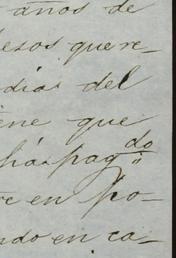 años de
pesos que re-
dias del
ene que
ha pagdo
re en po-
ndo en ca-